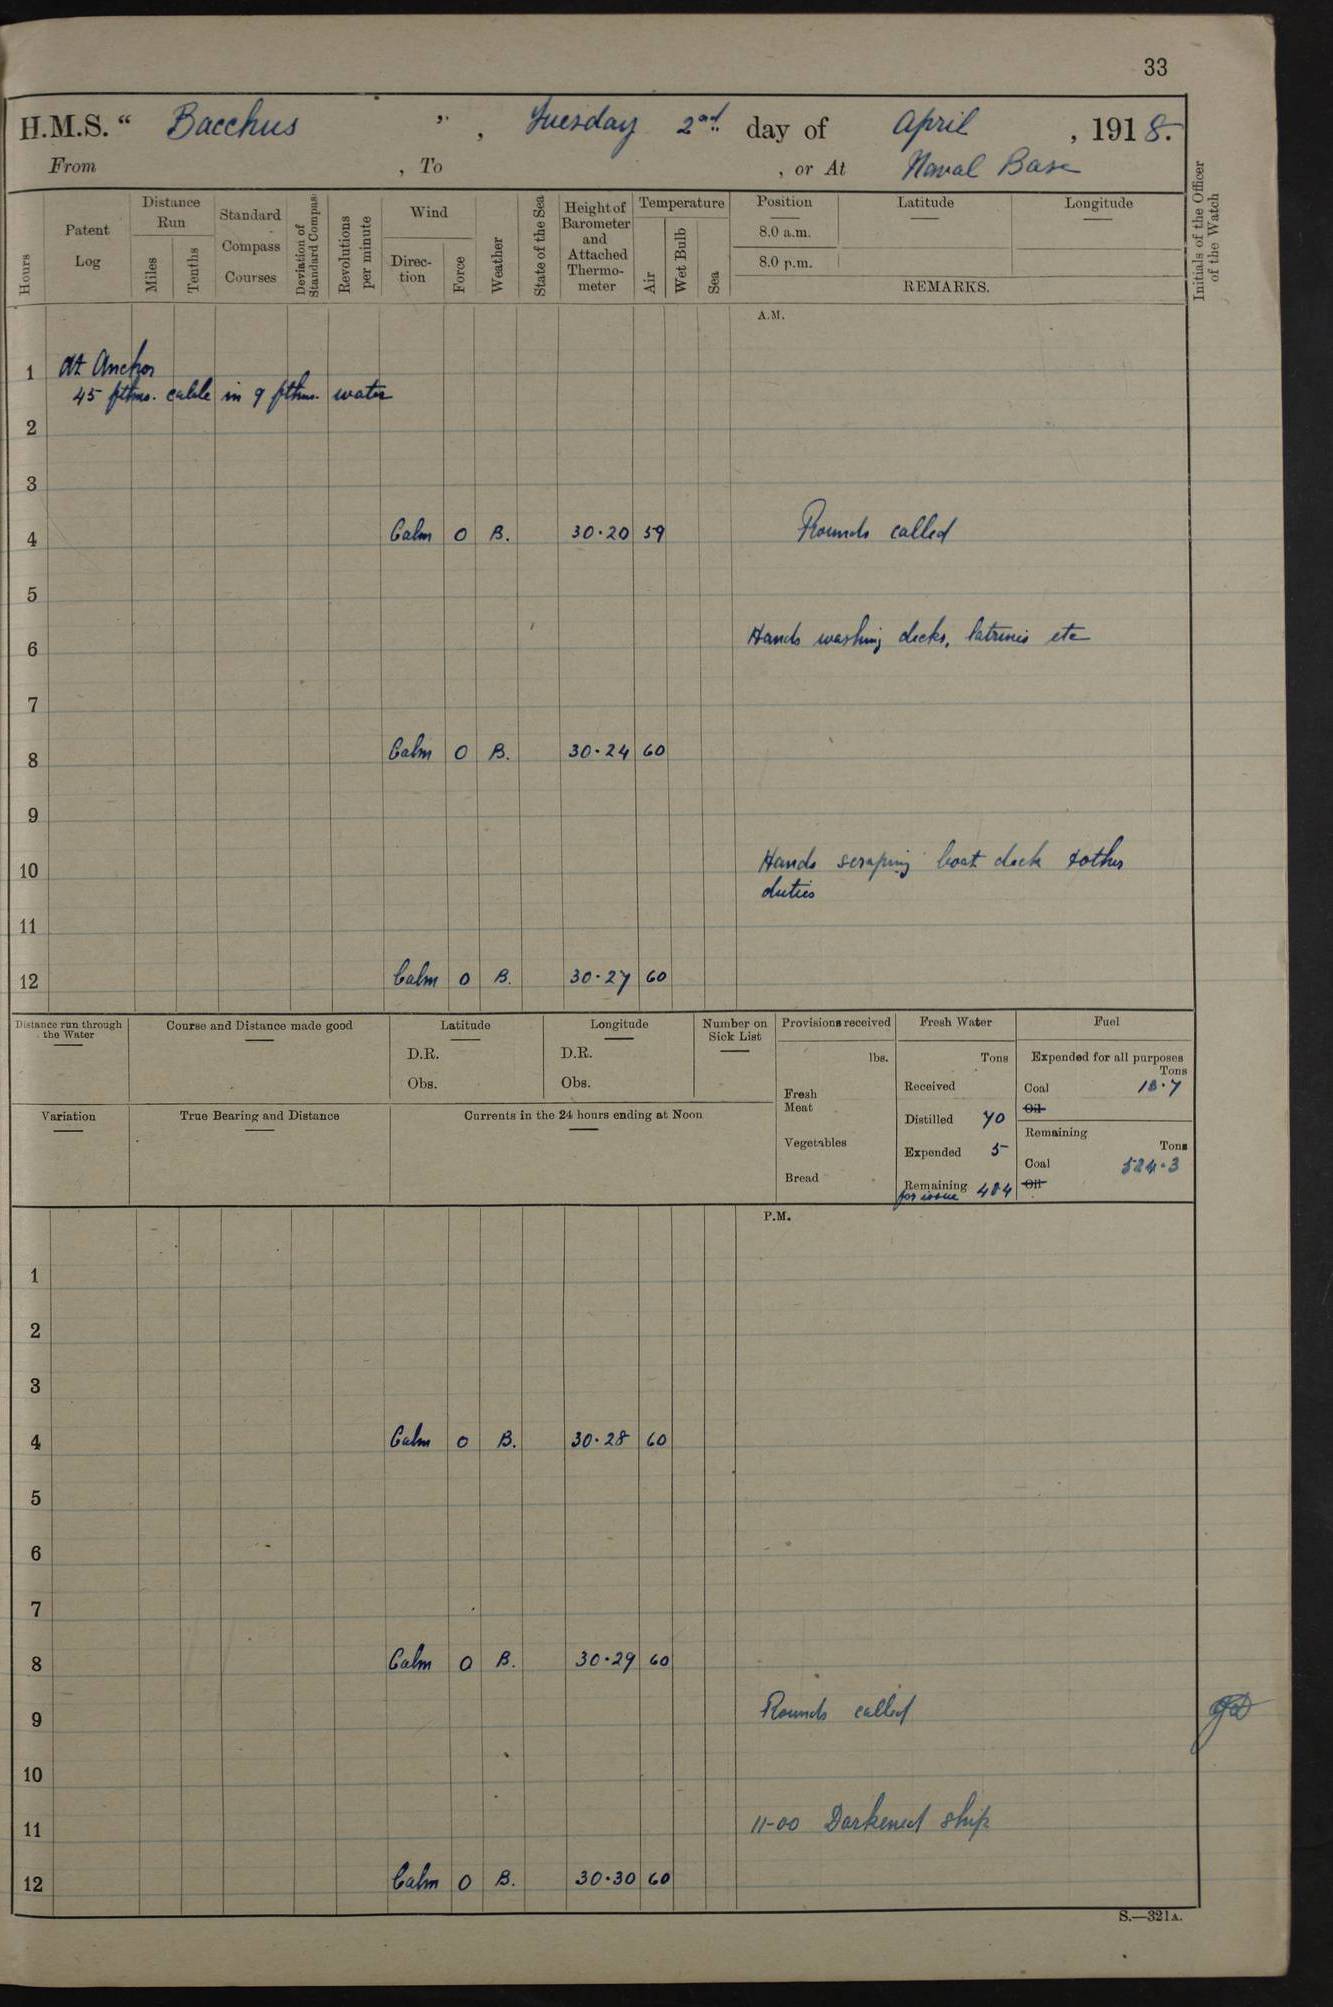 33
H.M.S. “ Bacchus ”, Tuesday 2nd day of April, 1918.
From , To , or At Naval Base
Hours
Patent Log
Distance Run
Miles
Tenths
Standard Compass Courses
Deviation of Standard Compass
Revolutions per minute
Wind
Direction
Force
Weather
State of the Sea
Height of Barometer and Attached Thermometer
Temperature
Air
Wet Bulb
Sea
Position
8.0 a.m.
8.0 p.m.
Latitude
Longitude
REMARKS.
Initials of the Officer of the Watch
A.M.
1 At Anchor
45 fthms. cable in 9 fthms. water
2
3
4 Calm 0 B. 30·20 59 Rounds called
5
6 Hands washing decks, latrines etc
7
8 Calm 0 B. 30·24 60
9
10 Hands scraping boat deck & other
duties
11
12 Calm 0 B. 30·27 60
Distance run through the Water
Course and Distance made good
Latitude
D.R.
Obs.
Longitude
D.R.
Obs.
Number on Sick List
Variation
True Bearing and Distance
Currents in the 24 hours ending at Noon
Provisions received
lbs.
Fresh Meat
Vegetables
Bread
Fresh Water
Tons
Received
Distilled 70
Expended 5
Remaining
for issue
Fuel
Expended for all purposes
Tons
Coal 18·7
Oil
Remaining
Tons
Coal 524·3
Oil
P.M.
1
2
3
4 Calm 0 B. 30·28 60
5
6
7
8 Calm 0 B. 30·29 60
9 Rounds called
10
11 11-00 Darkened ship
12 Calm 0 B. 30·30 60
S.—321A.